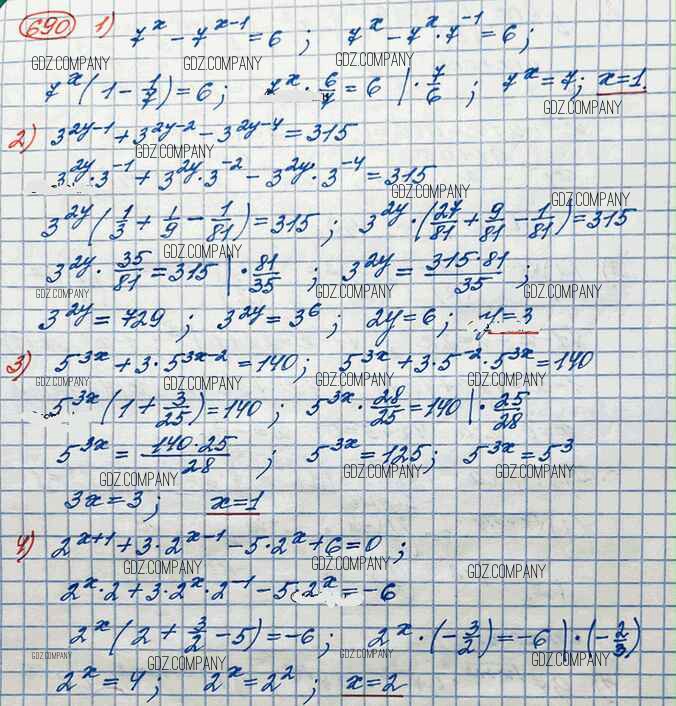 690 1) 7^x - 7^{x-1} = 6 ; 7^x - 7^x · 7^{-1} = 6 ;
GDZ.COMPANY GDZ.COMPANY GDZ.COMPANY
7^x (1 - 1/7) = 6 ; 7^x · 6/7 = 6 | · 7/6 ; 7^x = 7 ; x = 1
GDZ.COMPANY
2) 3^{2y-1} + 3^{2y-2} - 3^{2y-4} = 315
GDZ.COMPANY
3^{2y} · 3^{-1} + 3^{2y} · 3^{-2} - 3^{2y} · 3^{-4} = 315
GDZ.COMPANY
3^{2y} (1/3 + 1/9 - 1/81) = 315 ; 3^{2y} · (27/81 + 9/81 - 1/81) = 315
GDZ.COMPANY GDZ.COMPANY
3^{2y} · 35/81 = 315 | · 81/35 ; 3^{2y} = 315·81/35 ;
GDZ.COMPANY GDZ.COMPANY GDZ.COMPANY
3^{2y} = 729 ; 3^{2y} = 3^6 ; 2y = 6 ; y = 3
3) 5^{3x} + 3 · 5^{3x-2} = 140 ; 5^{3x} + 3 · 5^{-2} · 5^{3x} = 140
GDZ.COMPANY GDZ.COMPANY GDZ.COMPANY
5^{3x} (1 + 3/25) = 140 ; 5^{3x} · 28/25 = 140 | · 25/28
5^{3x} = 140·25/28 ; 5^{3x} = 125 ; 5^{3x} = 5^3
GDZ.COMPANY GDZ.COMPANY GDZ.COMPANY
3x = 3 ; x = 1
4) 2^{x+1} + 3 · 2^{x-1} - 5 · 2^x + 6 = 0 ;
GDZ.COMPANY GDZ.COMPANY GDZ.COMPANY
2^x · 2 + 3 · 2^x · 2^{-1} - 5 · 2^x = -6
2^x (2 + 3/2 - 5) = -6 ; 2^x · (-3/2) = -6 | · (-2/3)
GDZ.COMPANY GDZ.COMPANY GDZ.COMPANY GDZ.COMPANY
2^x = 4 ; 2^x = 2^2 ; x = 2